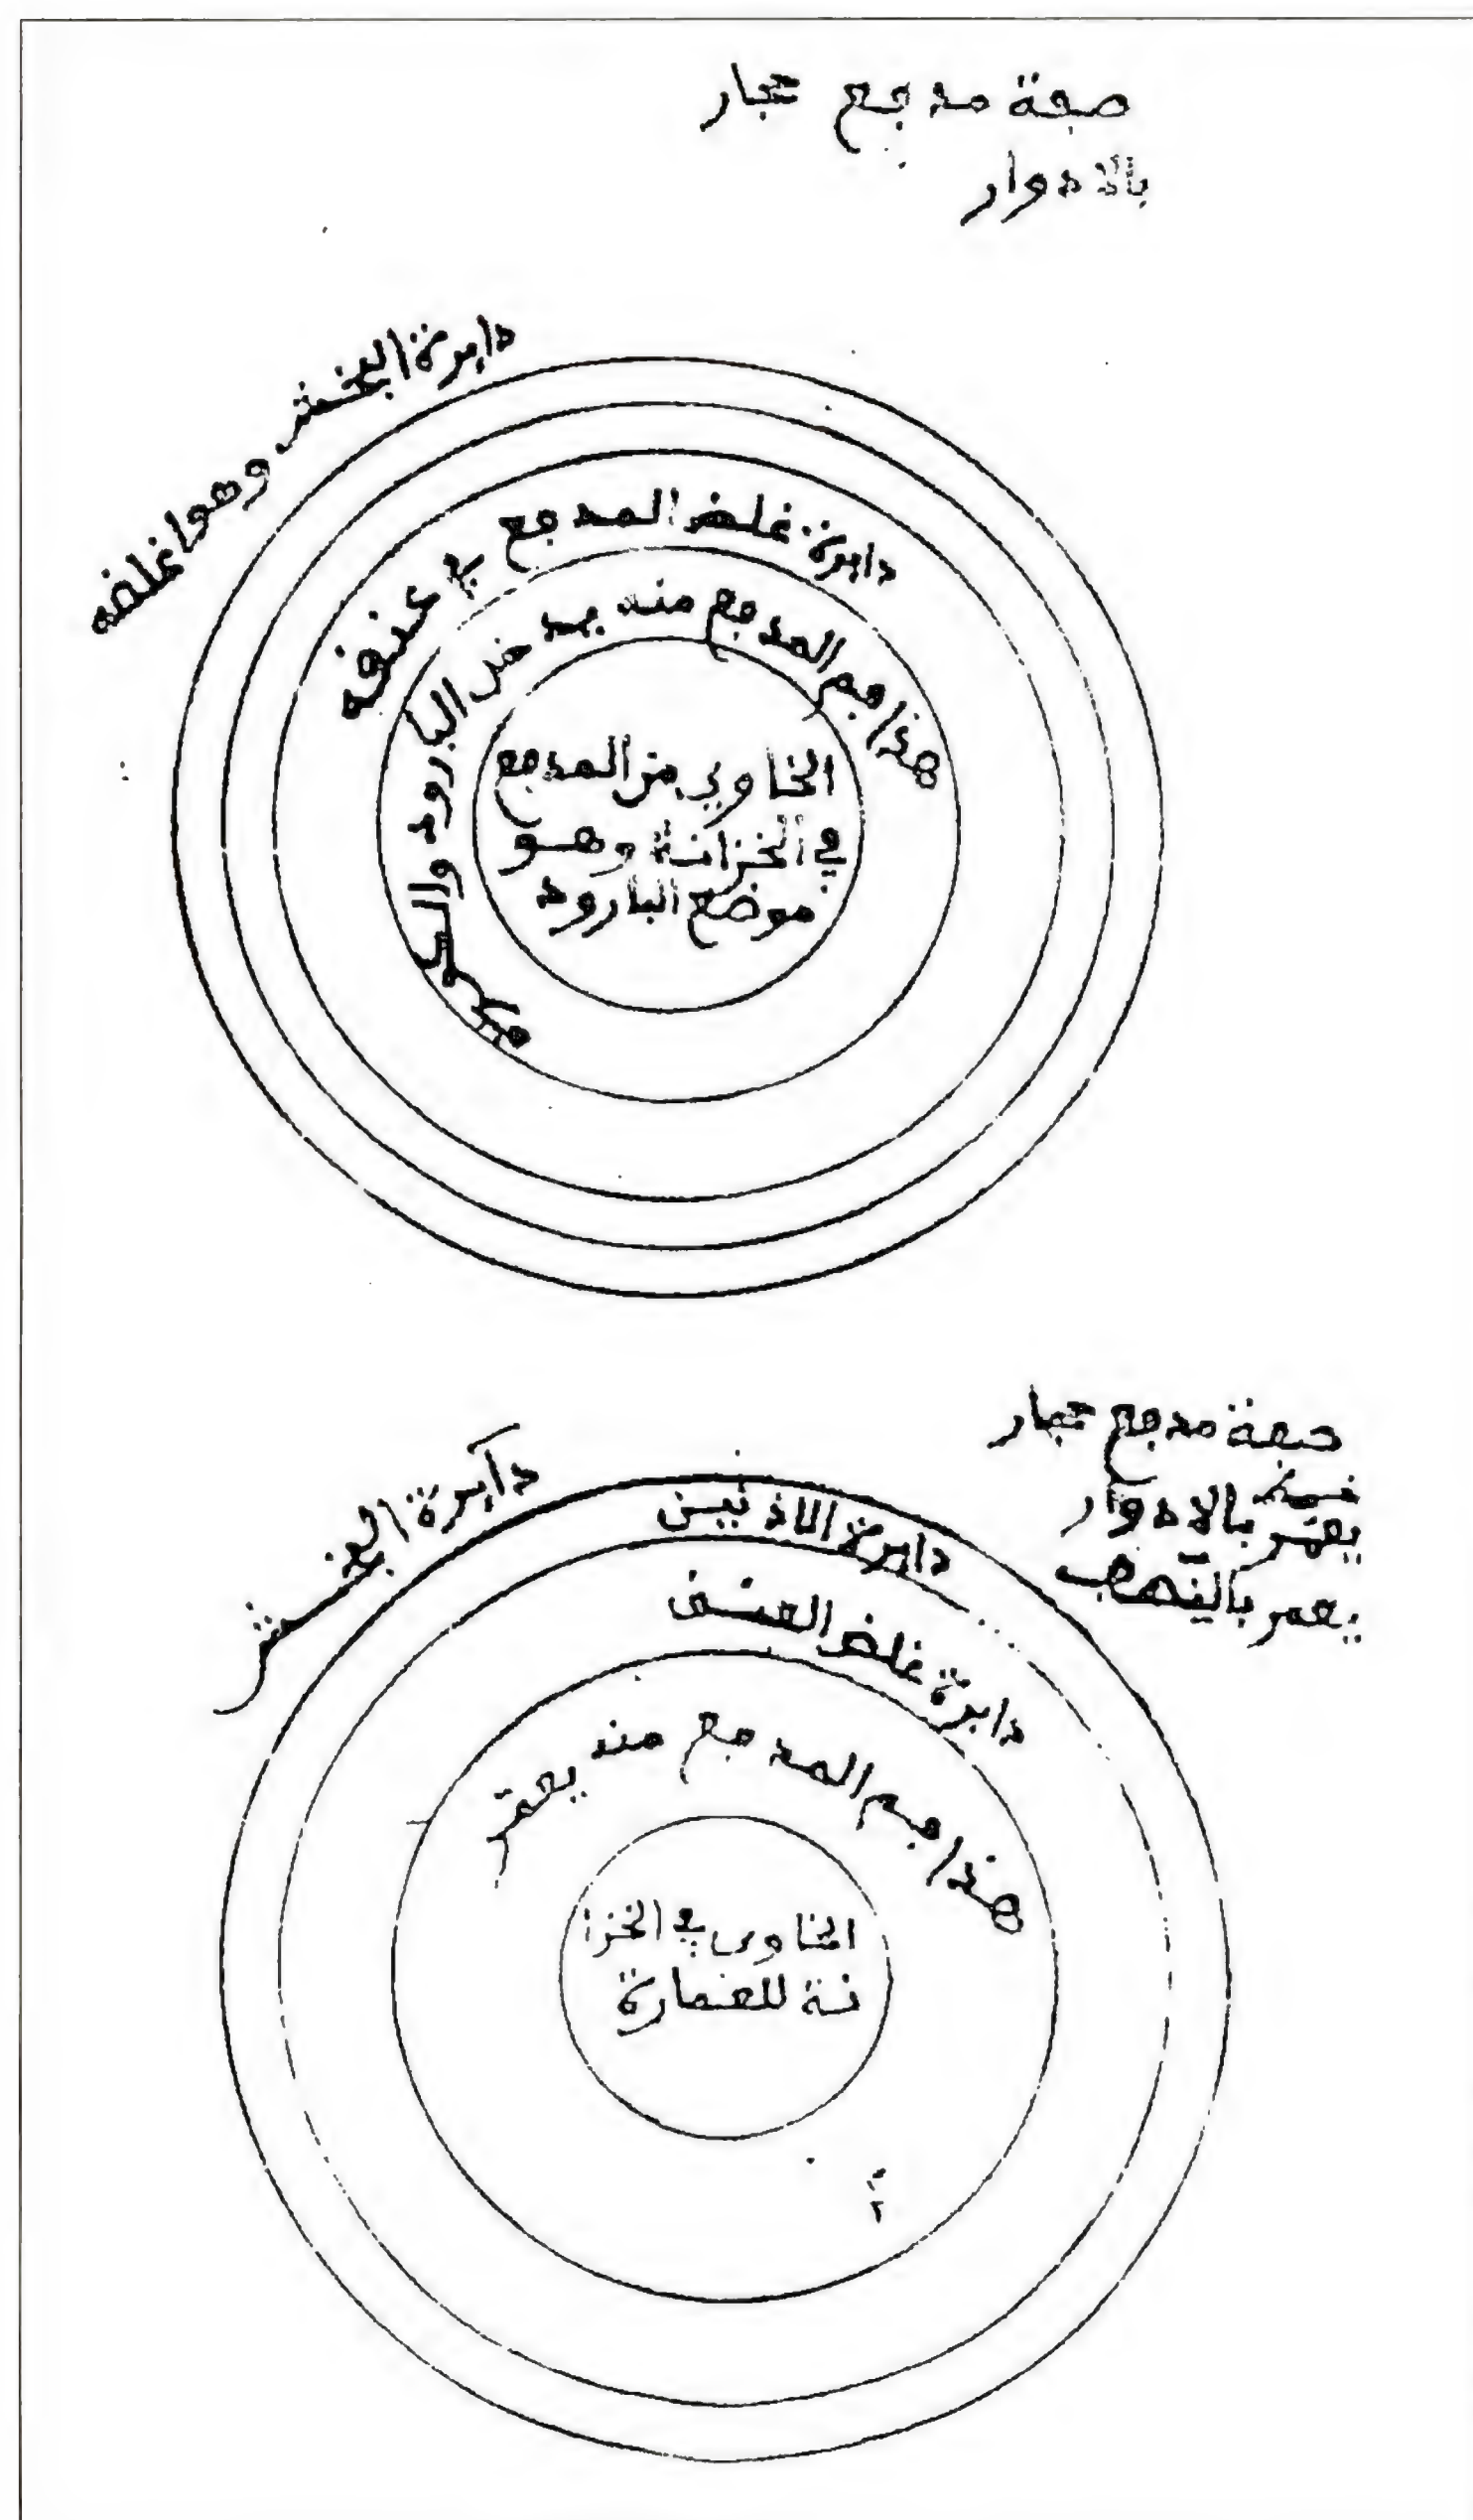 صفة مدفع حجار
بالادوار
دايرة البخش وهو اغلضه
دايرة غلض المدفع في عنقه
هذا فم المدفع منه يدخل البارود والكور
الخاوي من المدفع
في الخزانة وهو
موضع البارود
صفة مدفع حجار
يعمر بالادوار
يعمر
دايرة البخش
دايرة الاذنين
دايرة غلض العنق
هذا فم المدفع منه يعمر
الخاوي في الخزا
نة للعمارة